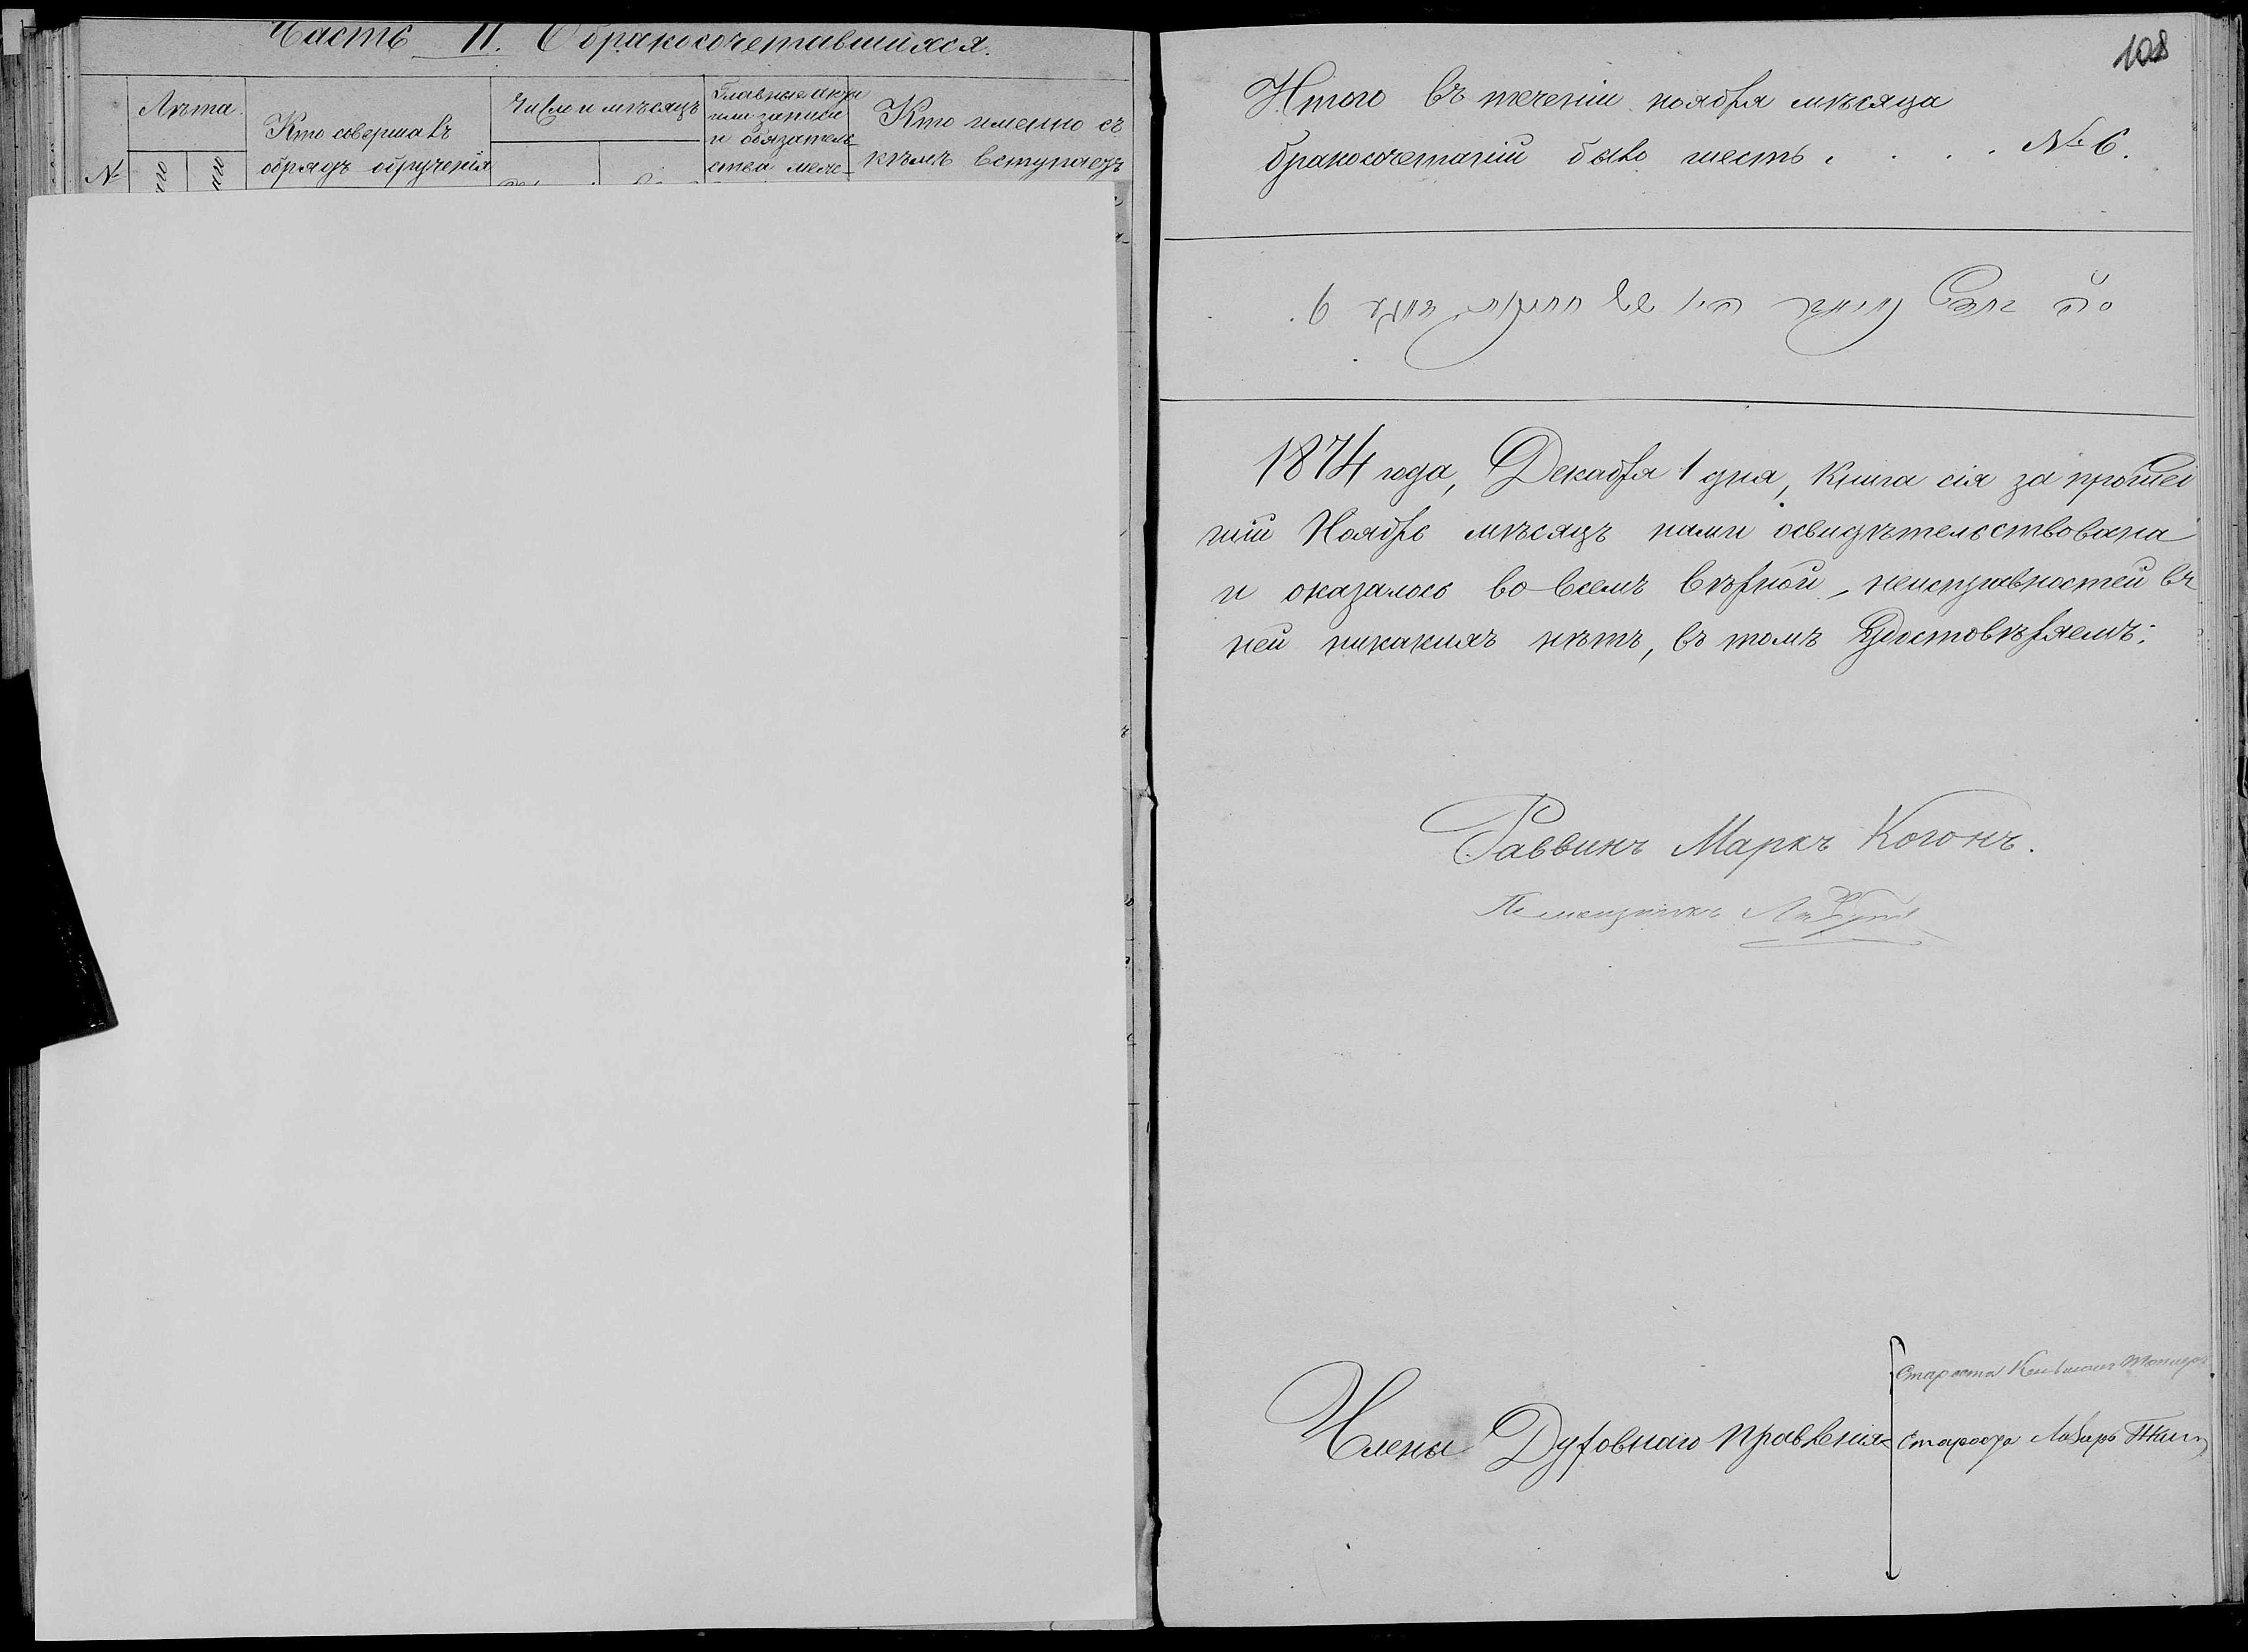 Часть II. О бракосочетавшихся.
№
Лѣта.
Кто совершалъ
обрядъ обрученія
Число и мѣсяцъ
Главные акты
или записи
и обязатель-
ства меж-
Кто именно съ
кѣмъ вступаетъ
108
Итого въ теченіи ноября мѣсяца
бракосочетаній было шесть . . . . № 6.
6
1874 года, Декабря 1 дня, Книга сія за прошед
шій Ноябрь мѣсяцъ нами освидѣтельствована
и оказалось во всемъ вѣрной, неисправностей въ
ней никакихъ нѣтъ, въ томъ Удостовѣряемъ:
Раввинъ Маркъ Когонъ.
Члены Духовнаго Правленія
Староста
Староста Лазарь